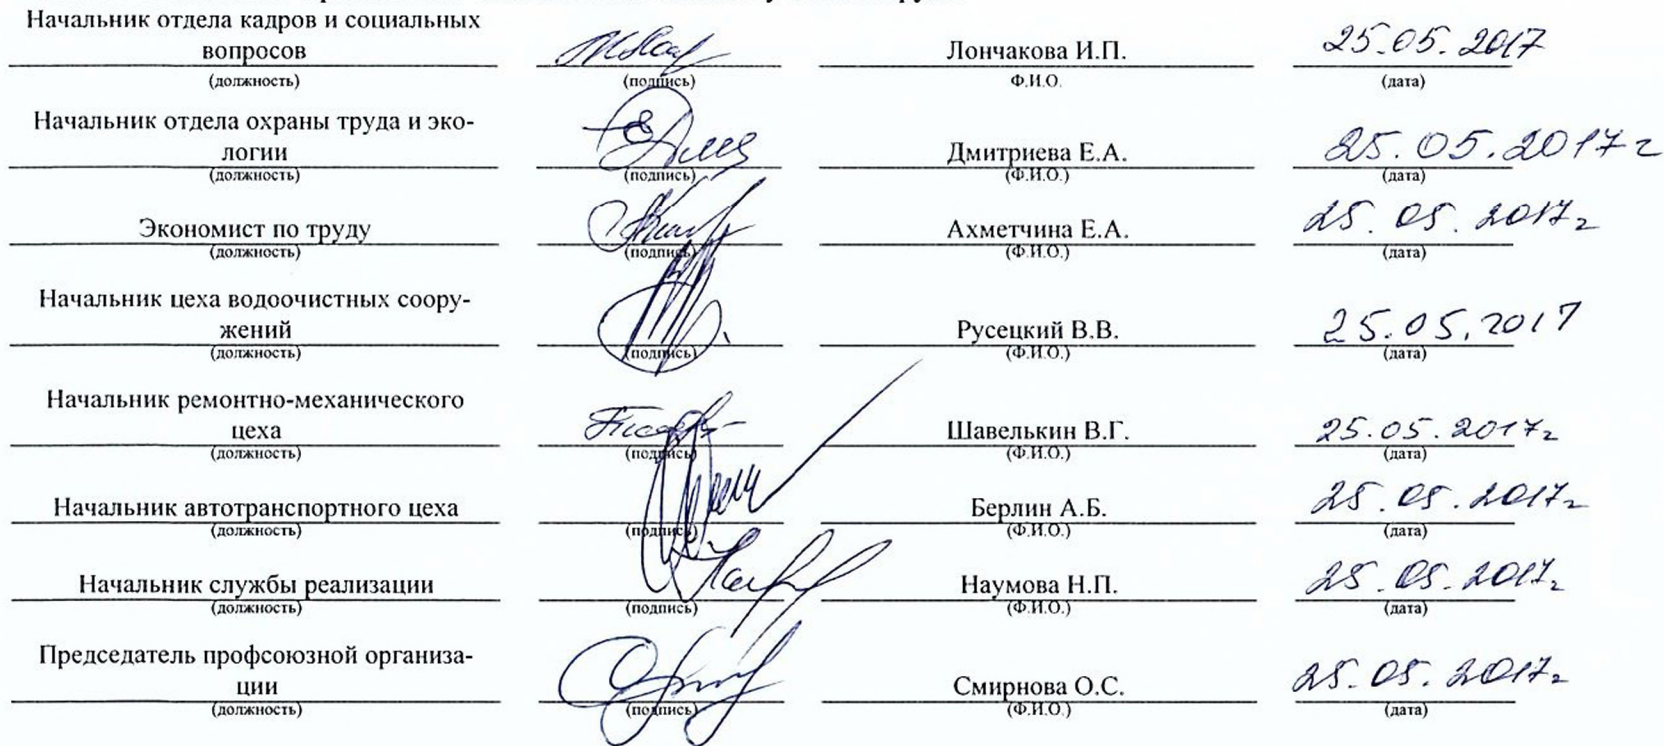 Начальник отдела кадров и социальных
вопросов Лончакова И.П. 25.05.2017
(должность) (подпись) Ф.И.О. (дата)
Начальник отдела охраны труда и эко-
логии Дмитриева Е.А. 25.05.2017г
(должность) (подпись) (Ф.И.О.) (дата)
Экономист по труду Ахметчина Е.А. 25.05.2017г
(должность) (подпись) (Ф.И.О.) (дата)
Начальник цеха водоочистных соору-
жений Русецкий В.В. 25.05.2017
(должность) (подпись) (Ф.И.О.) (дата)
Начальник ремонтно-механического
цеха Шавелькин В.Г. 25.05.2017г
(должность) (подпись) (Ф.И.О.) (дата)
Начальник автотранспортного цеха Берлин А.Б. 25.05.2017г
(должность) (подпись) (Ф.И.О.) (дата)
Начальник службы реализации Наумова Н.П. 25.05.2017г
(должность) (подпись) (Ф.И.О.) (дата)
Председатель профсоюзной организа-
ции Смирнова О.С. 25.05.2017г
(должность) (подпись) (Ф.И.О.) (дата)